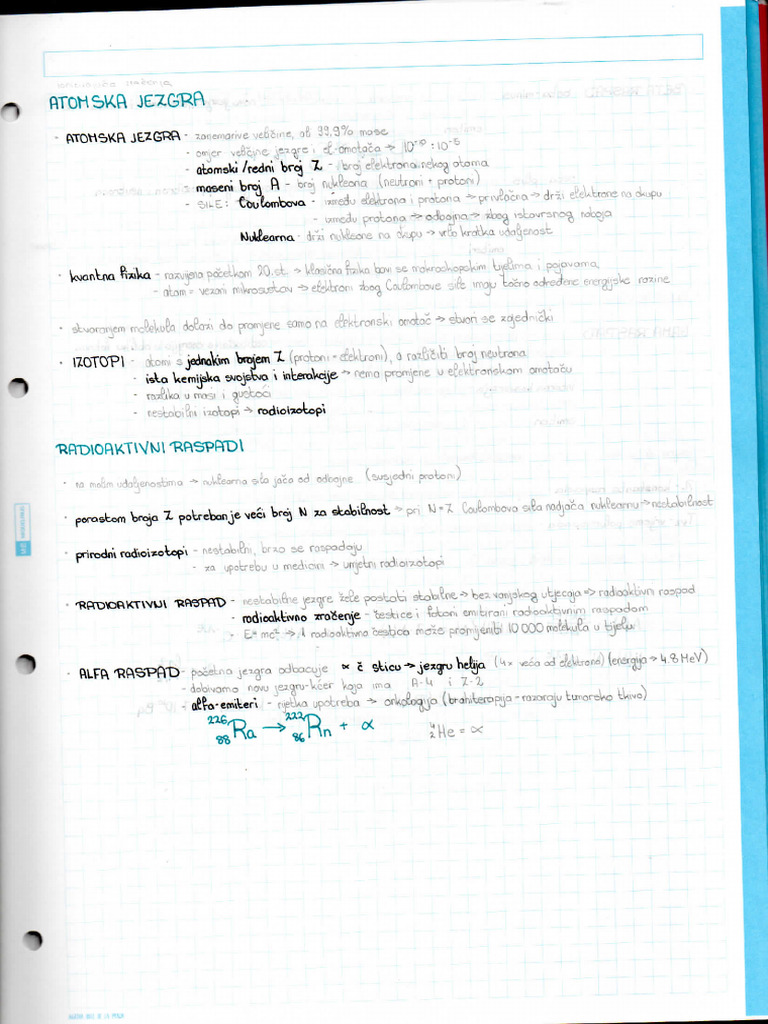 ATOMSKA JEZGRA
· ATOMSKA JEZGRA - zanemarive veličine, ali 99,9% mase
- omjer veličine jezgre i el. omotača → 10⁻¹⁰ : 10⁻⁵
- atomski/redni broj Z - broj elektrona nekog atoma
- maseni broj A - broj nukleona (neutroni + protoni)
- SILE: Coulombova - između elektrona i protona → privlačna → drži elektrone na okupu
- između protona → odbojna → zbog istovrsnog naboja
Nuklearna - drži nukleone na okupu → vrlo kratka udaljenost
· kvantna fizika - razvijena početkom 20. st. → klasična fizika bavi se makroskopskim tijelima i pojavama,
- atom = vezani mikrosustav → elektroni zbog Coulombove sile imaju točno određene energijske razine
· stvaranjem molekula dolazi do promjene samo na elektronski omotač → stvori se zajednički
· IZOTOPI - atomi s jednakim brojem Z (protoni = elektroni), a različiti broj neutrona
- ista kemijska svojstva i interakcije → nema promjene u elektronskom omotaču
- razlika u masi i gustoći
- nestabilni izotopi → radioizotopi
RADIOAKTIVNI RASPADI
· na malim udaljenostima → nuklearna sila jača od odbojne (susjedni protoni)
· porastom broja Z potreban je veći broj N za stabilnost → pri N=Z Coulombova sila nadjača nuklearnu → nestabilnost
· prirodni radioizotopi - nestabilni, brzo se raspadaju
- za upotrebu u medicini → umjetni radioizotopi
· RADIOAKTIVNI RASPAD - nestabilne jezgre žele postati stabilne → bez vanjskog utjecaja → radioaktivni raspad
- radioaktivno zračenje - čestice i fotoni emitirani radioaktivnim raspadom
- E = mc² → 1 radioaktivna čestica može promijeniti 10 000 molekula u tijelu
· ALFA RASPAD - početna jezgra odbacuje α č sticu → jezgru helija (4x veća od elektrona) (energija > 4.8 MeV)
- dobivamo novu jezgru-kćer koja ima A-4 i Z-2
- alfa-emiteri - rijetka upotreba → onkologija (brahiterapija - razaraju tumorsko tkivo)
²²⁶₈₈Ra → ²²²₈₆Rn + α ⁴₂He = α